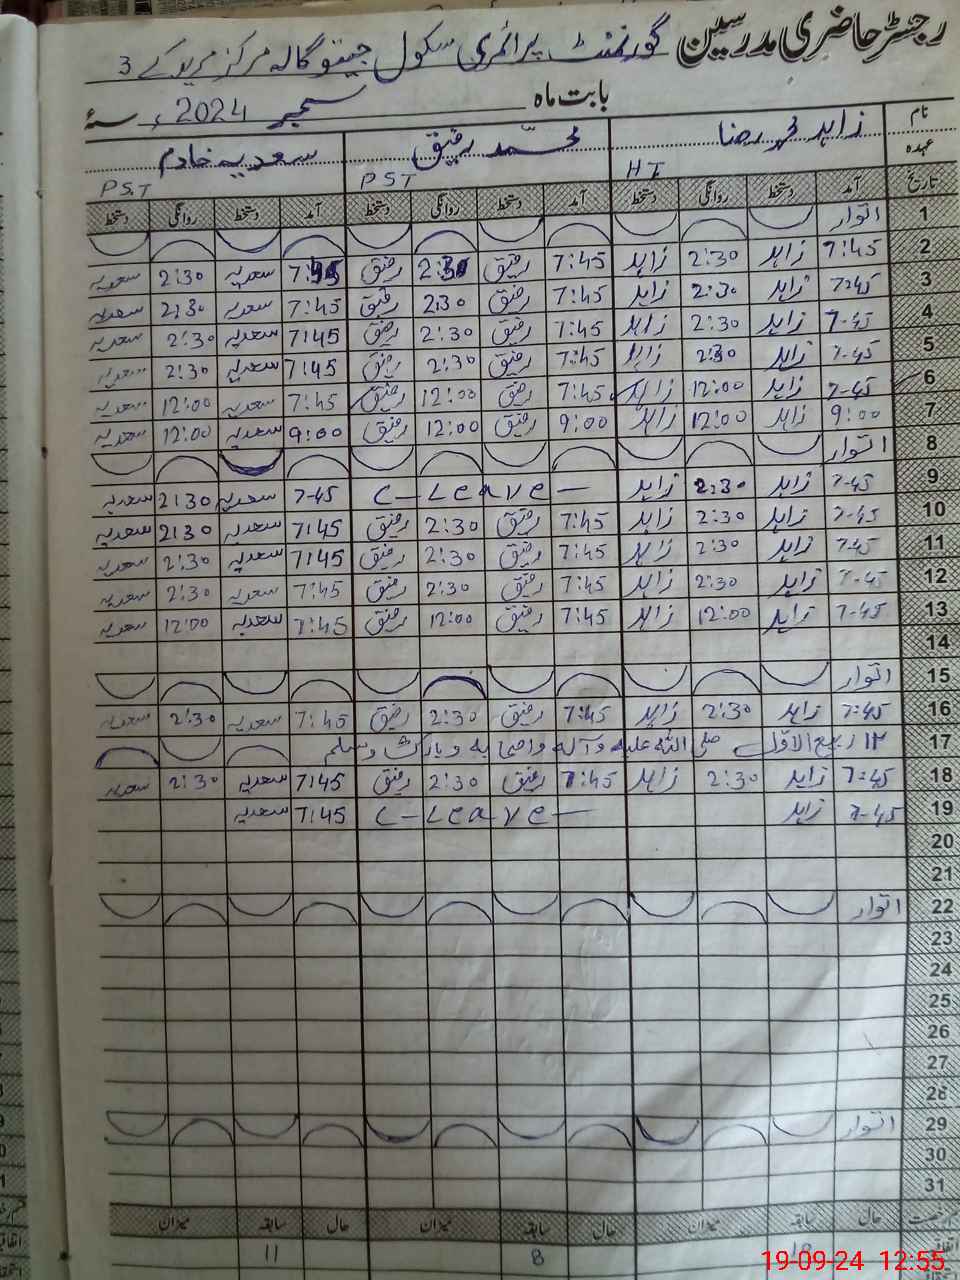 رجسٹر حاضری مدرسین گورنمنٹ پرائمری سکول جیتو گالہ مرکز مریدکے 3
بابت ماہ ستمبر 2024ء سنۂ
نام زاہد محمد رضا محمد رفیق سعدیہ خادم
عہدہ HT PST PST
تاریخ آمد دستخط روانگی دستخط آمد دستخط روانگی دستخط آمد دستخط روانگی دستخط
1 اتوار
2 7:45 زاہد 2:30 زاہد 7:45 رفیق 2:30 رفیق 7:45 سعدیہ 2:30 سعدیہ
3 7-45 زاہد 2:30 زاہد 7:45 رفیق 2:30 رفیق 7:45 سعدیہ 2:30 سعدیہ
4 7-45 زاہد 2:30 زاہد 7:45 رفیق 2:30 رفیق 7:45 سعدیہ 2:30 سعدیہ
5 7-45 زاہد 2:30 زاہد 7:45 رفیق 2:30 رفیق 7:45 سعدیہ 2:30 سعدیہ
6 7-45 زاہد 12:00 زاہد 7:45 رفیق 12:00 رفیق 7:45 سعدیہ 12:00 سعدیہ
7 9:00 زاہد 12:00 زاہد 9:00 رفیق 12:00 رفیق 9:00 سعدیہ 12:00 سعدیہ
8 اتوار
9 7-45 زاہد 2:30 زاہد C-Leave- 7-45 سعدیہ 2:30 سعدیہ
10 7-45 زاہد 2:30 زاہد 7:45 رفیق 2:30 رفیق 7:45 سعدیہ 2:30 سعدیہ
11 7-45 زاہد 2:30 زاہد 7:45 رفیق 2:30 رفیق 7:45 سعدیہ 2:30 سعدیہ
12 7-45 زاہد 2:30 زاہد 7:45 رفیق 2:30 رفیق 7:45 سعدیہ 2:30 سعدیہ
13 7-45 زاہد 12:00 زاہد 7:45 رفیق 12:00 رفیق 7:45 سعدیہ 12:00 سعدیہ
14
15 اتوار
16 7:45 زاہد 2:30 زاہد 7:45 رفیق 2:30 رفیق 7:45 سعدیہ 2:30 سعدیہ
17 ۱۲ ربیع الاوّل صلی اللہ علیہ وآلہ واصحابہ وبارک وسلم
18 7:45 زاہد 2:30 زاہد 7:45 رفیق 2:30 رفیق 7:45 سعدیہ 2:30 سعدیہ
19 7-45 زاہد C-Leave- 7:45 سعدیہ
20
21
22 اتوار
23
24
25
26
27
28
29 اتوار
30
31
حال سابقہ میزان حال سابقہ میزان حال سابقہ میزان
8 11
19-09-24 12:55